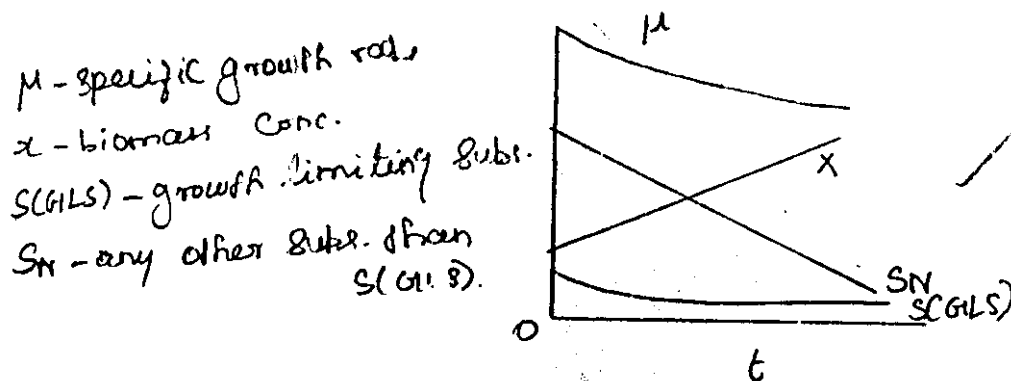 μ - specific growth rate
x - biomass conc.
S(GLS) - growth limiting subs.
SN - any other subs. than
S(GLS).
μ
X
SN
S(GLS)
O
t